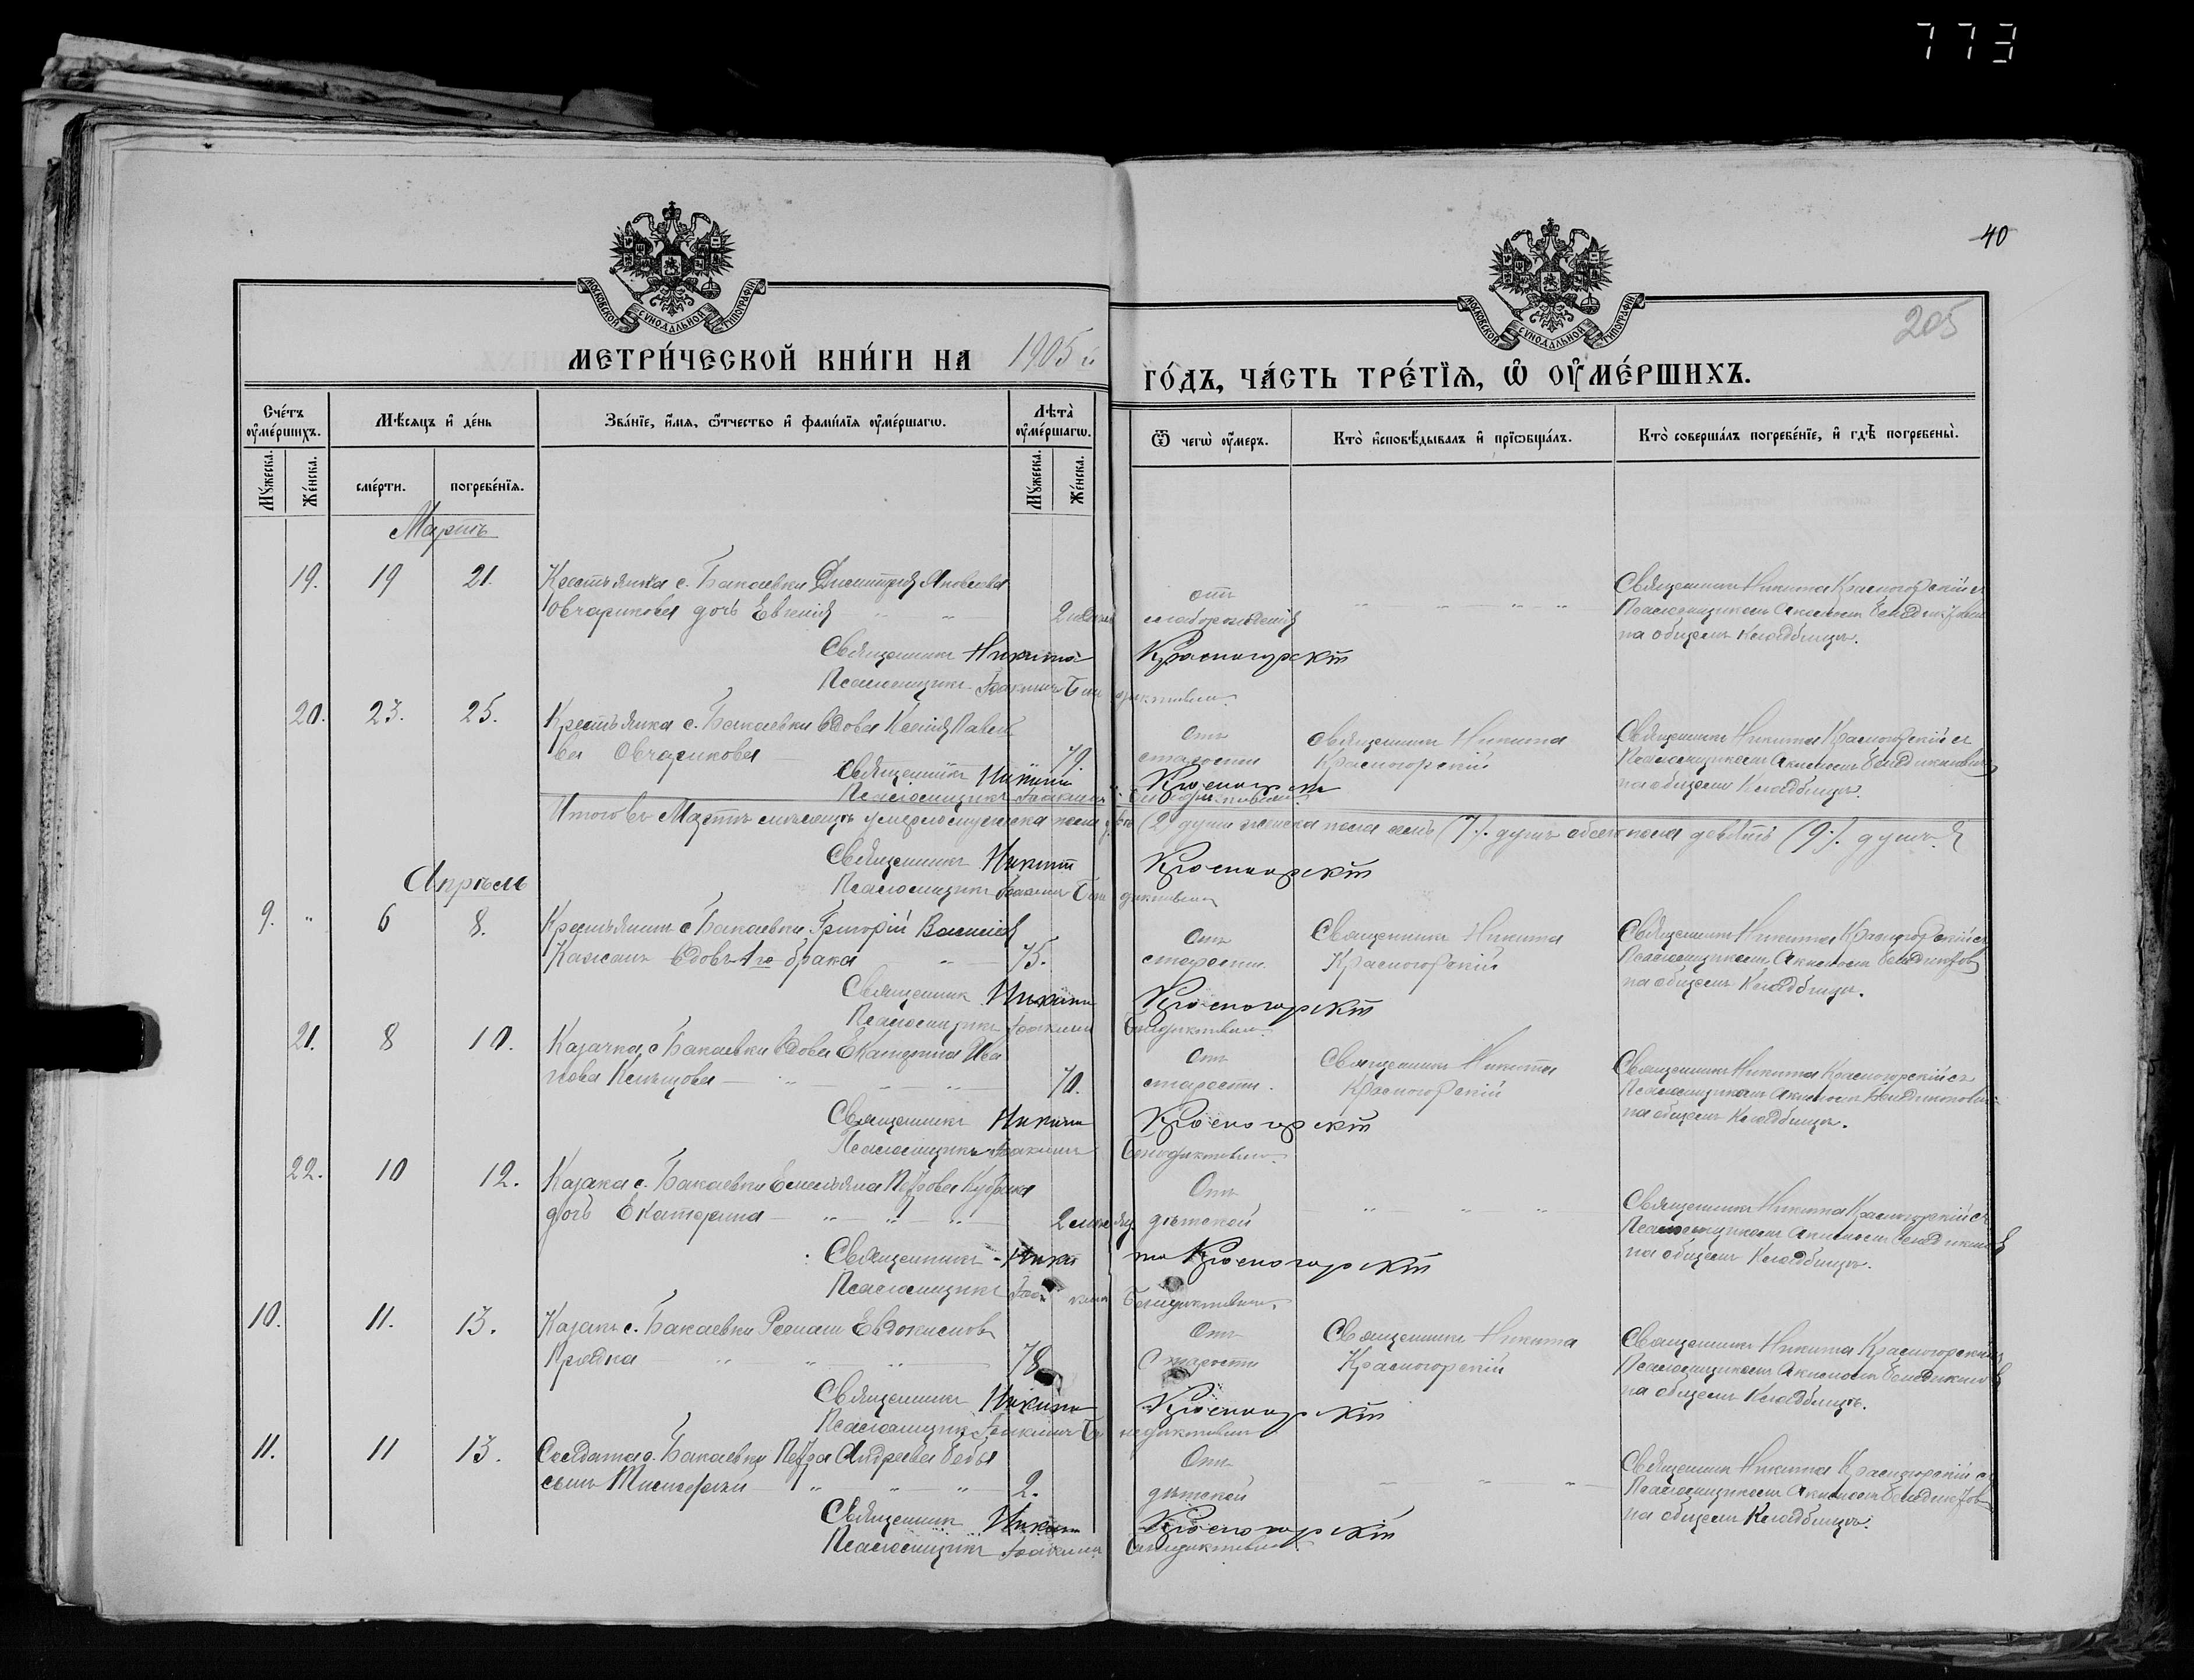 773
40
205
МОСКОВСКОЙ СѴНОДАЛЬНОЙ ТИПОГРАФІИ
МОСКОВСКОЙ СѴНОДАЛЬНОЙ ТИПОГРАФІИ
МЕТРИ́ЧЕСКОЙ КНИ́ГИ НА 1905 й
ГО́ДЪ, ЧА́СТЬ ТРЕ́ТЇѦ, Ѡ ОУ҆МЕ́РШИХЪ.
Сче́тъ оу҆ме́ршихъ.
Мѣ́сяцъ и҆ де́нь
Зва́нїе, и҆́мя, ѻ҆́тчество и҆ фами́лїя оу҆ме́ршагѡ.
Лѣта̀ оу҆ме́ршагѡ.
Ѿ чегѡ̀ оу҆́меръ.
Кто̀ и҆сповѣ́дывалъ и҆ прїѡбща́лъ.
Кто̀ соверша́лъ погребе́нїе, и҆ гдѣ̀ погребены̀.
Му́жеска.
Же́нска.
сме́рти.
погребе́нїя.
Му́жеска.
Же́нска.
Мартъ
19. 19 21. Крестьянина с. Бакаевки Димитрія Яковлева
Овчарикова дочь Евгенія 2 недели
отъ слаборожденія
Священникъ Никита Красногорскій съ
Псаломщикомъ Акимомъ Бенедиктовымъ
на общемъ кладбищѣ.
Священникъ Никита Красногорскій
Псаломщикъ Іоакимъ Бенедиктовичъ
20. 23. 25. Крестьянка с. Бакаевки вдова Ксенія Павло
ва Овчарикова 79.
Отъ старости
Священникъ Никита
Красногорскій
Священникъ Никита Красногорскій съ
Псаломщикомъ Акимомъ Бенедиктовымъ
на общемъ кладбищѣ.
Священникъ Никита Красногорскій
Псаломщикъ Іоакимъ Бенедиктовичъ
Итого въ Мартѣ мѣсяцѣ умерло мужеска пола двѣ (2) души женска пола семь (7). душъ обоего пола девять (9). душъ.
Священникъ Никита Красногорскій
Псаломщикъ Іоакимъ Бенедиктовичъ
Апрѣль
9. " 6 8. Крестьянинъ с. Бакаевки Григорій Василіев
вдовъ 1го брака 75.
Отъ старости
Священникъ Никита
Красногорскій
Священникъ Никита Красногорскій съ
Псаломщикомъ Акимомъ Бенедиктов
на общемъ кладбищѣ.
Священникъ Никита Красногорскій
Псаломщикъ Іоакимъ Бенедиктовичъ
21. 8 10. Казачка с. Бакаевки вдова Екатерина Ива
нова 70.
Отъ старости.
Священникъ Никита
Красногорскій
Священникъ Никита Красногорскій съ
Псаломщикомъ Акимомъ Бенедиктовым
на общемъ кладбищѣ.
Священникъ Никита Красногорскій
Псаломщикъ Іоакимъ Бенедиктовичъ
22. 10 12. Казака с. Бакаевки Емельяна Петрова
дочь Екатерина 2 месяц
Отъ дѣтской
Священникъ Никита Красногорскій съ
Псаломщикомъ Акимомъ Бенедиктов
на общемъ кладбищѣ.
Священникъ Никита Красногорскій
Псаломщикъ Іоакимъ Бенедиктовичъ
10. 11. 13. Казакъ с. Бакаевки Роман Евдокимовъ
Прядка 78
Отъ Старости
Священникъ Никита
Красногорскій
Священникъ Никита Красногорскій
Псаломщикомъ Акимомъ Бенедиктов
на общемъ кладбищѣ.
Священникъ Никита Красногорскій
Псаломщикъ Іоакимъ Бенедиктовичъ
11. 11 13. Солдата с. Бакаевки Петра Андреева
сынъ Тимофей 2.
Отъ дѣтской
Священникъ Никита Красногорскій съ
Псаломщикомъ Акимомъ Бенедиктов
на общемъ кладбищѣ.
Священникъ Никита Красногорскій
Псаломщикъ Іоакимъ Бенедиктовичъ